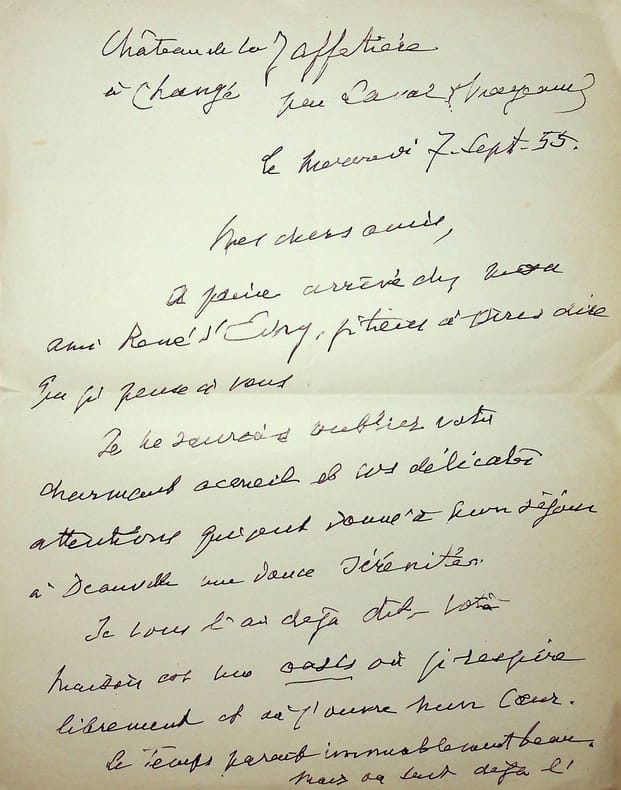 Château de la Jaffetière
à Changé par Laval (Mayenne)
le Mercredi 7-Sept-55.
Mes chers amis,
A peine arrivé chez mon
ami René d'Evry, je tiens à vous dire
que je pense à vous
Je ne saurais oublier votre
charmant accueil et vos délicates
attentions qui ont donné à mon séjour
à Deauville une douce sérénité.
Je vous l'ai déjà dit - votre
maison est une oasis où je respire
librement et où j'ouvre mon cœur.
Le temps parait immuablement beau.
mais on sent déjà l'